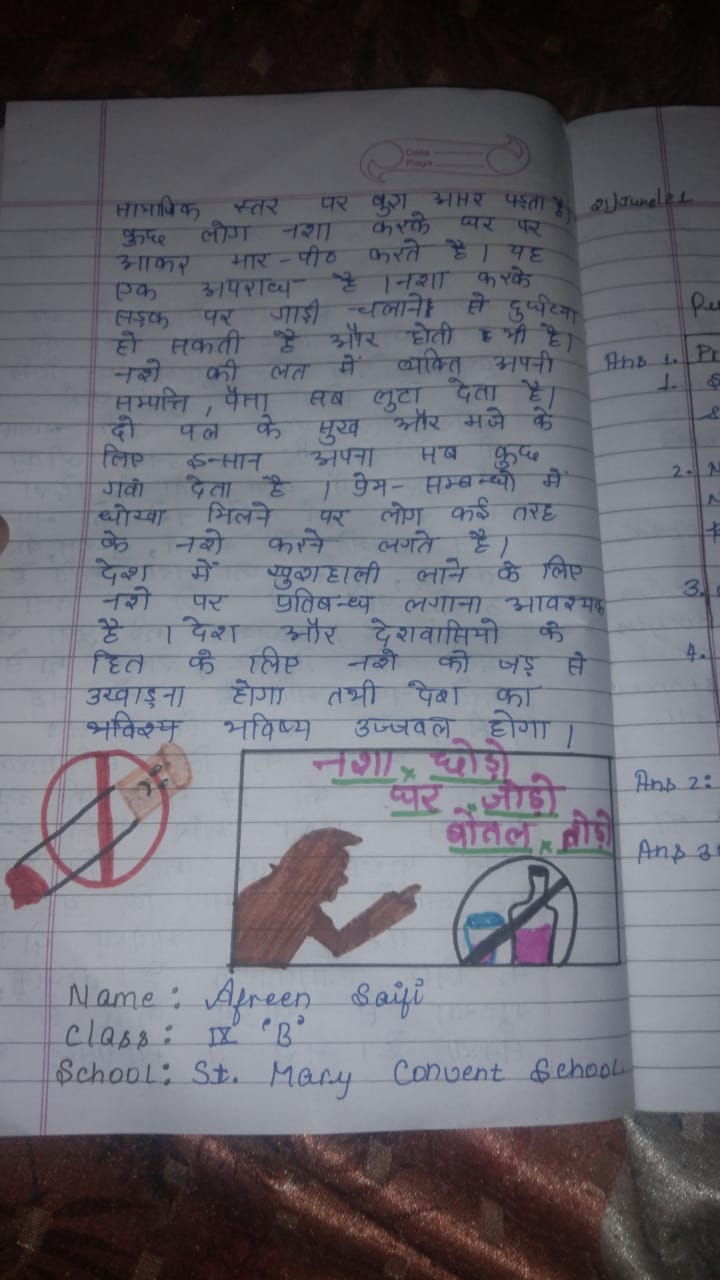 Date
Page
सामाजिक स्तर पर बुरा असर पड़ता है।
कुछ लोग नशा करके घर पर
आकर मार-पीठ करते है। यह
एक अपराध है। नशा करके
सड़क पर गाड़ी चलाने से दुर्घटना
हो सकती है और होती भी है।
नशे की लत में व्यक्ति अपनी
सम्पत्ति, पैसा सब लुटा देता है।
दो पल के सुख और मजे के
लिए इन्सान अपना सब कुछ
गवां देता है। प्रेम-सम्बन्धो में
धोखा मिलने पर लोग कई तरह
के नशे करने लगते है।
देश में खुशहाली लाने के लिए
नशे पर प्रतिबन्ध लगाना आवश्यक
है। देश और देशवासियो के
हित के लिए नशे को जड़ से
उखाड़ना होगा तभी देश का
भविश्य भविष्य उज्जवल होगा।
नशा छोड़ो
घर जोड़ो
बोतल तोड़ो
Name: Afreen Saifi
Class: IX 'B'
School: St. Mary Convent School
21/June/21
Ans 1.
1.
2.
3.
4.
Ans 2:
Ans 3